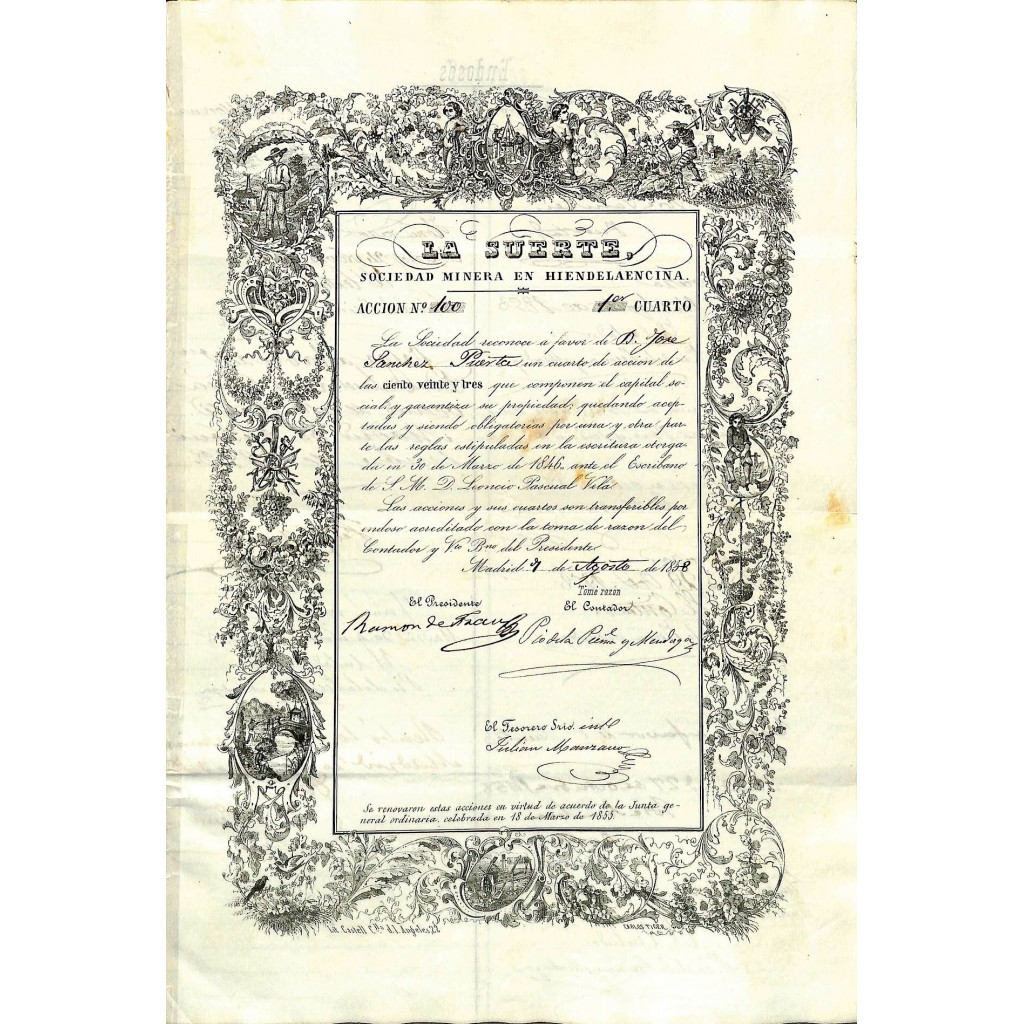 LA SUERTE,
SOCIEDAD MINERA EN HIENDELAENCINA.
ACCION Nº 100 1.er CUARTO
La Sociedad reconoce á favor de D. Jose
Sanchez Puerta un cuarto de accion de
las ciento veinte y tres que componen el capital so-
cial; y garantiza su propiedad; quedando acep-
tadas y siendo obligatorias por una y otra par-
te las reglas estipuladas en la escritura otorga-
da en 30 de Marzo de 1846 ante el Escribano
de S. M. D. Leoncio Pascual Vela.
Las acciones y sus cuartos son transferibles por
endoso acreditado con la toma de razon del
Contador y Vto Bno del Presidente.
Madrid 7 de Agosto de 1858
Tomé razón
El Presidente El Contador
Ramon de
Pio de la Peña y
El Tesorero Srio. intº
Julián Manzano
Se renovaron estas acciones en virtud de acuerdo de la Junta ge-
neral ordinaria, celebrada en 18 de Marzo de 1855.
Lit. Castell C.lla d.l. Angeles 22